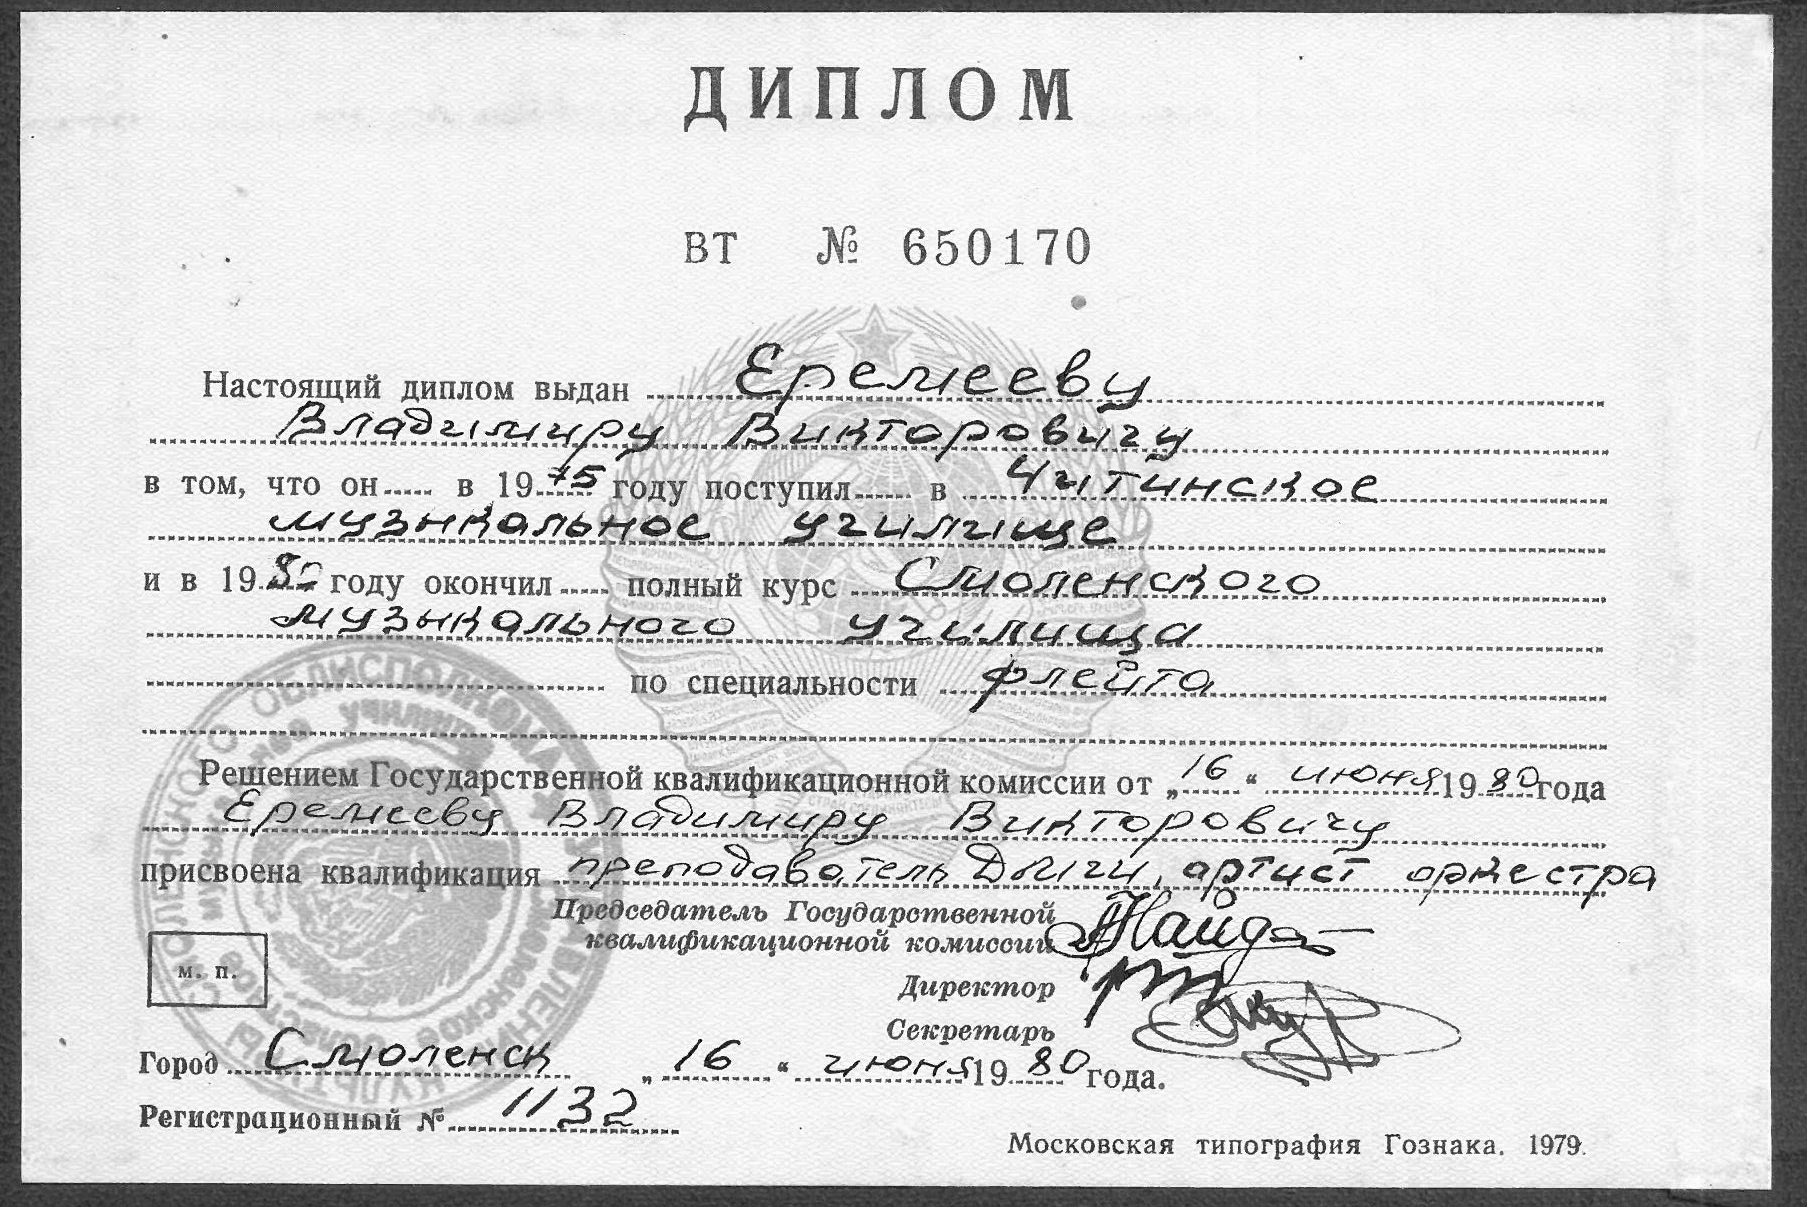 ДИПЛОМ
ВТ № 650170
Настоящий диплом выдан Еремееву
Владимиру Викторовичу
в том, что он в 1975 году поступил в Читинское
музыкальное училище
и в 1980 году окончил полный курс Смоленского
музыкального училища
по специальности флейта
Решением Государственной квалификационной комиссии от „16“ июня 1980 года
Еремееву Владимиру Викторовичу
присвоена квалификация преподаватель ДМШ, артист оркестра
Председатель Государственной
квалификационной комиссии
Директор
м. п.
Секретарь
Город Смоленск „16“ июня 1980 года.
Регистрационный № 1132
Московская типография Гознака. 1979.